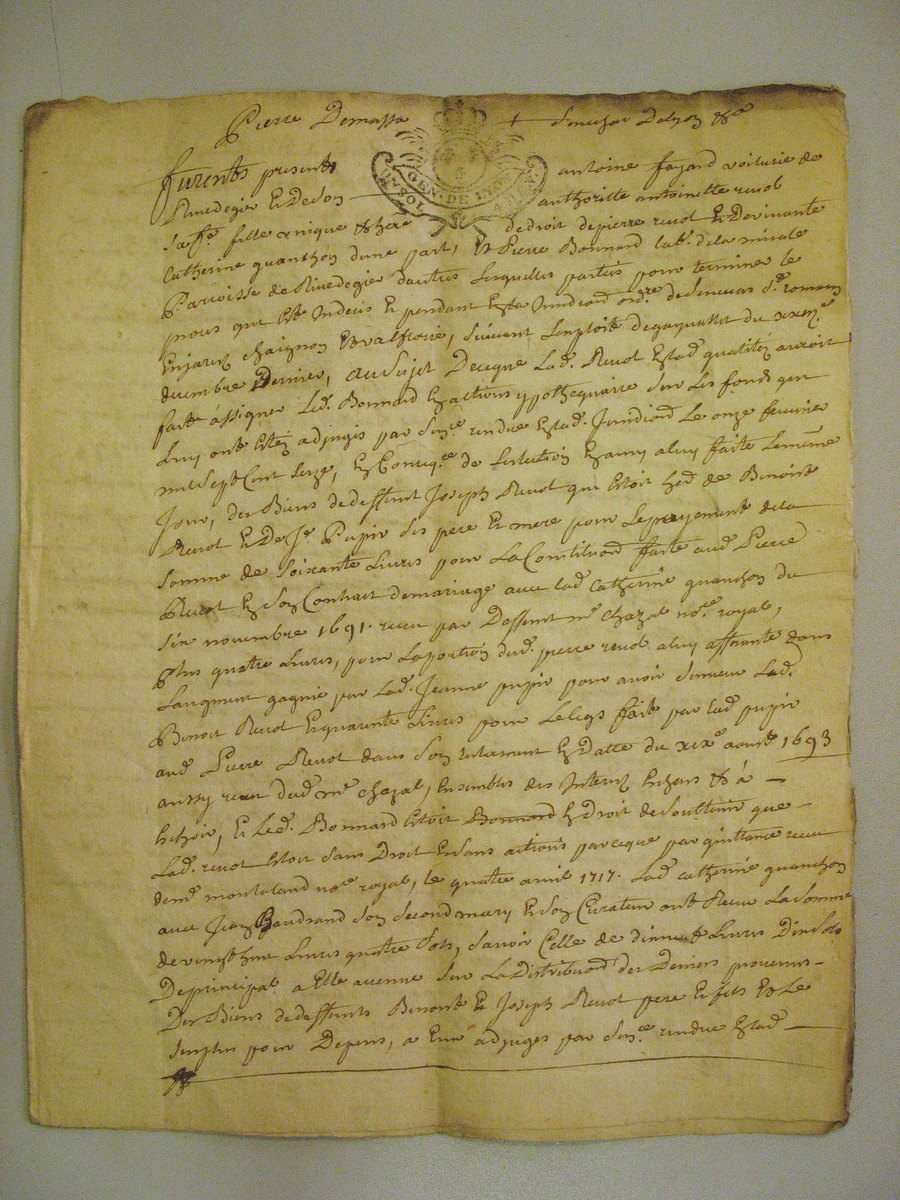 Pierre Demassa + Senechal Delyon &c
GEN · DE LYON
UN SOL 4 DEN
furents presents antoine fayard voiturié de
Rivedegier Et de son authoritté antoinette revol
sa fe. fille unique & here de droit de pierre revol Et devivante
Catherine guanchon dune part, Et Pierre Bonnard labr. de la
Parroisse de Rivedegier dautre Lesquelles parties pour terminer le
proces qui Est Indecis Et pendant En la
En jarez Chaignon Et valfloire, suivant Lexploit de du xxixe.
decembre Dernier, au sujet Deceque Lad. Revol Esd. qualitez auroit
fait assigner Led. Bonnard En actions ypothequaire sur Les fonds qui
Luy ont Estez adjugés par Sence. rendue Le onze fevrier
mil sept Cent seize, En Conseqce. de Luy faite Lemême
Jour, des Biens dedeffunt Joseph Revol qui Estoit herr. de Benoist
Revol Et De Je. Pupier ses pere Et mere pour Lepayement dela
somme de soixante Livres pour La Constitution faite aud. Pierre
Revol En son Contrait demariage avec lad. Catherine guanchon du
six novembre 1691. receu par Deffunt me. Chazal nore. royal,
Plus quatre Livres, pour Laportion dud. pierre revol a luy afferante dans
Laugment gagnée par Lad. Jeanne pupier pour avoir survecu Lad.
Benoit Revol Et quarente Livres pour Le legs fait par lad. pupier
aud. Pierre Revol dans son testament En Datte du xixe aoust 1693
aussy receu dud. me. Chazal, Ensembles des Interetz Echeus & à
Echoir, Et Led. Bonnard Estoit En Droit de Soustenir que
Lad. revol Estoit sans Droit Et sans actions parceque par quittance receue
deme. montaland nore. royal, le quatre avril 1717. Lad. Catherine guanchon
avec Jean Gaudrand son second mary Et son Curateur ont Receu La Somme
de vingt huit Livres quatre sols, Savoir Celle de Livres Dix Sols
De principal a Elle avenue sur La Distribution des Deniers provenus
Des Biens dedeffunts Benoit Et Joseph Revol pere Et fils Et Le
Surplus pour Depens, a Eux adjugés par Sence. rendue